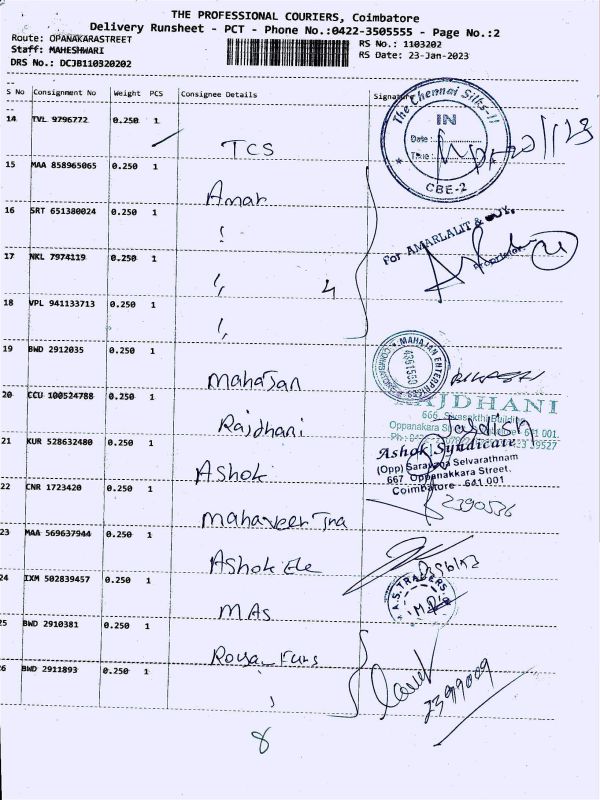 THE PROFESSIONAL COURIERS, Coimbatore
Delivery Runsheet - PCT - Phone No.:0422-3505555 - Page No.:2
Route: OPANAKARASTREET
Staff: MAHESHWARI
DRS No.: DCJB110320202
RS No.: 1103202
RS Date: 23-Jan-2023
S No Consignment No Weight PCS Consignee Details Signature
14 TVL 9796772 0.250 1
TCS
The Chennai Silks-II
IN
Date :
Time :
CBE-2
15 MAA 858965065 0.250 1
Amar
16 SRT 651380024 0.250 1
For AMARLALIT & 
Proprietor
17 NKL 7974119 0.250 1
4
18 VPL 941133713 0.250 1
19 BWD 2912035 0.250 1
Mahajan
MAHAJAN ENTERPRISES
COIMBATORE
20 CCU 100524788 0.250 1
Rajdhani
RAJDHANI
666, Sivasakthi Building
Oppanakara
641 001.
21 KUR 528632480 0.250 1
Ashok
Ashok Syndicate
(Opp) Saravana Selvarathnam
667 Oppanakkara Street,
Coimbatore - 641 001
22 CNR 1723420 0.250 1
Mahaveer Tna
2390536
23 MAA 569637944 0.250 1
Ashok Ele
24 IXM 502839457 0.250 1
MAs
A.S. TRADERS
25 BWD 2910381 0.250 1
26 BWD 2911893 0.250 1
2399009
8